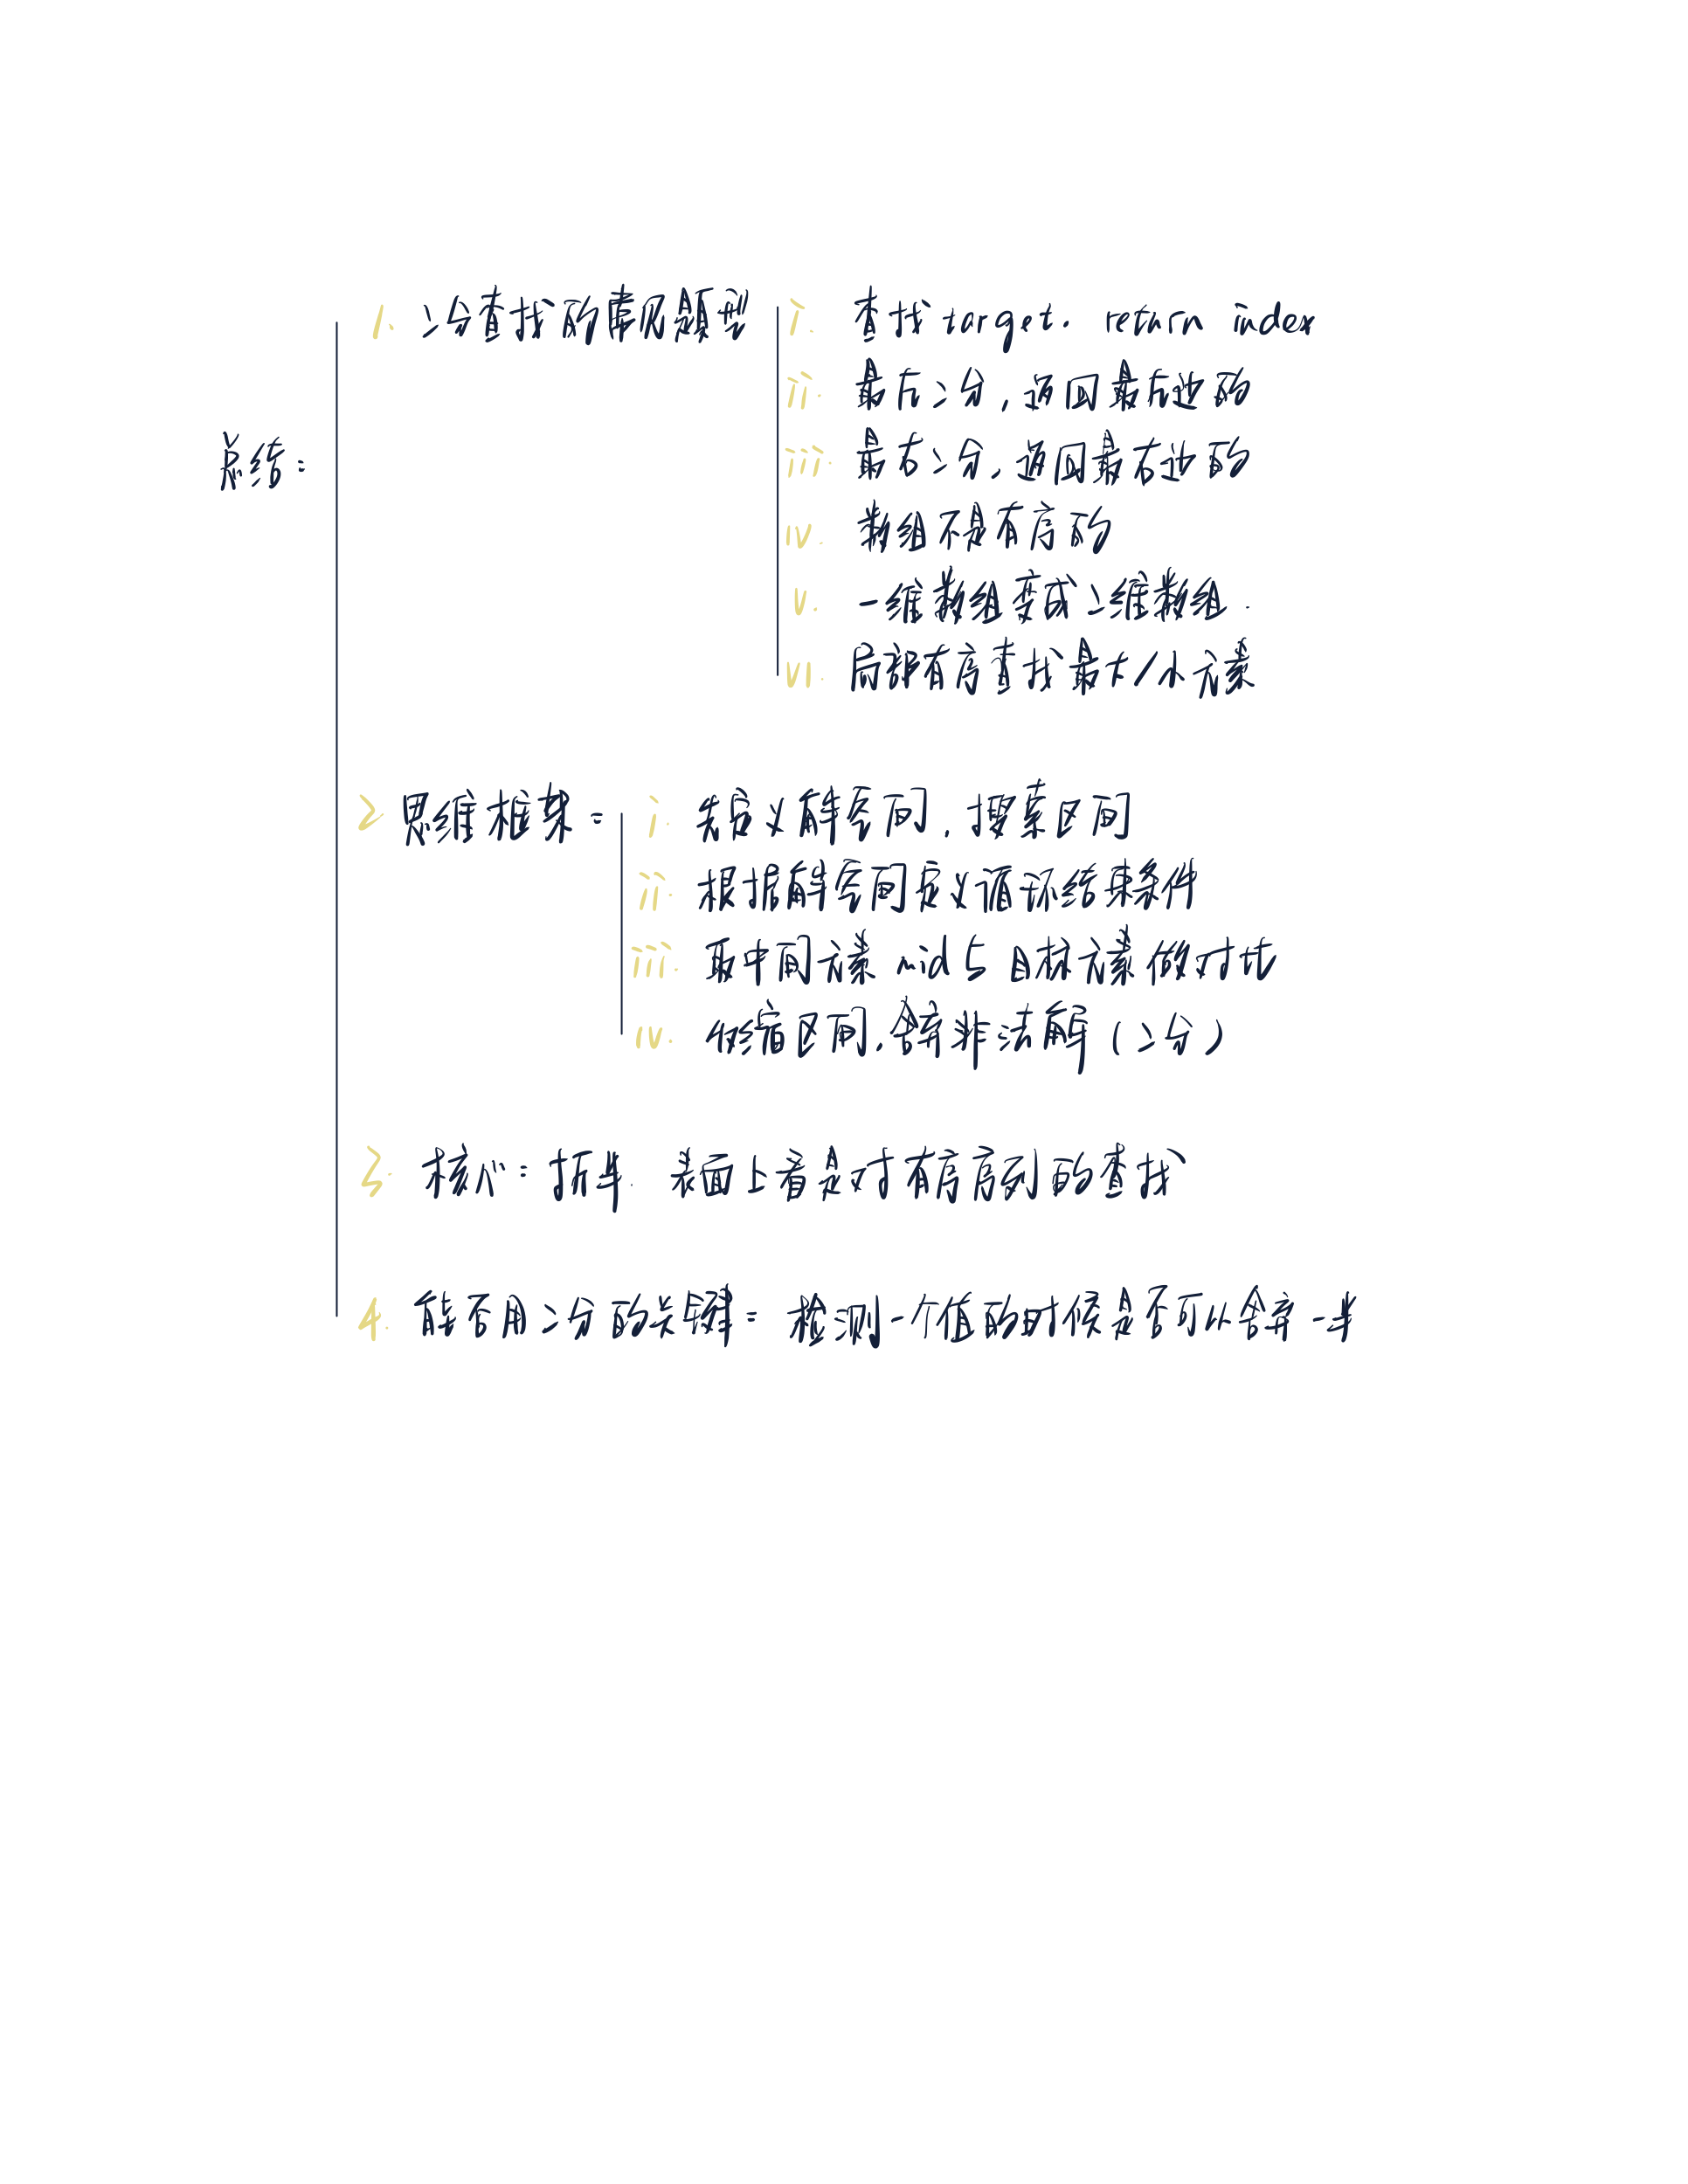 总结:
1. 二分查找的常见题型
i. 查找target. return index
ii. 最左二分, 返回最左边的
iii. 最右二分, 返回最右边的
iv. 数组不是有序的
v. 一维数组变成二维数组.
vi. 局部有序查找最大/小元素
2. 思维框架:
i. 先定义解空间, 搜索区间
ii. 根据解空间定义循环结束条件
iii. 取中间元素 mid与目标元素做对比
iv. 收缩区间, 舍弃非法解 (二分)
3. 核心: 折半. 表面上看是对有序序列的查找
4. 能否用二分的关键: 检测一个值的时候是否可以舍弃一半